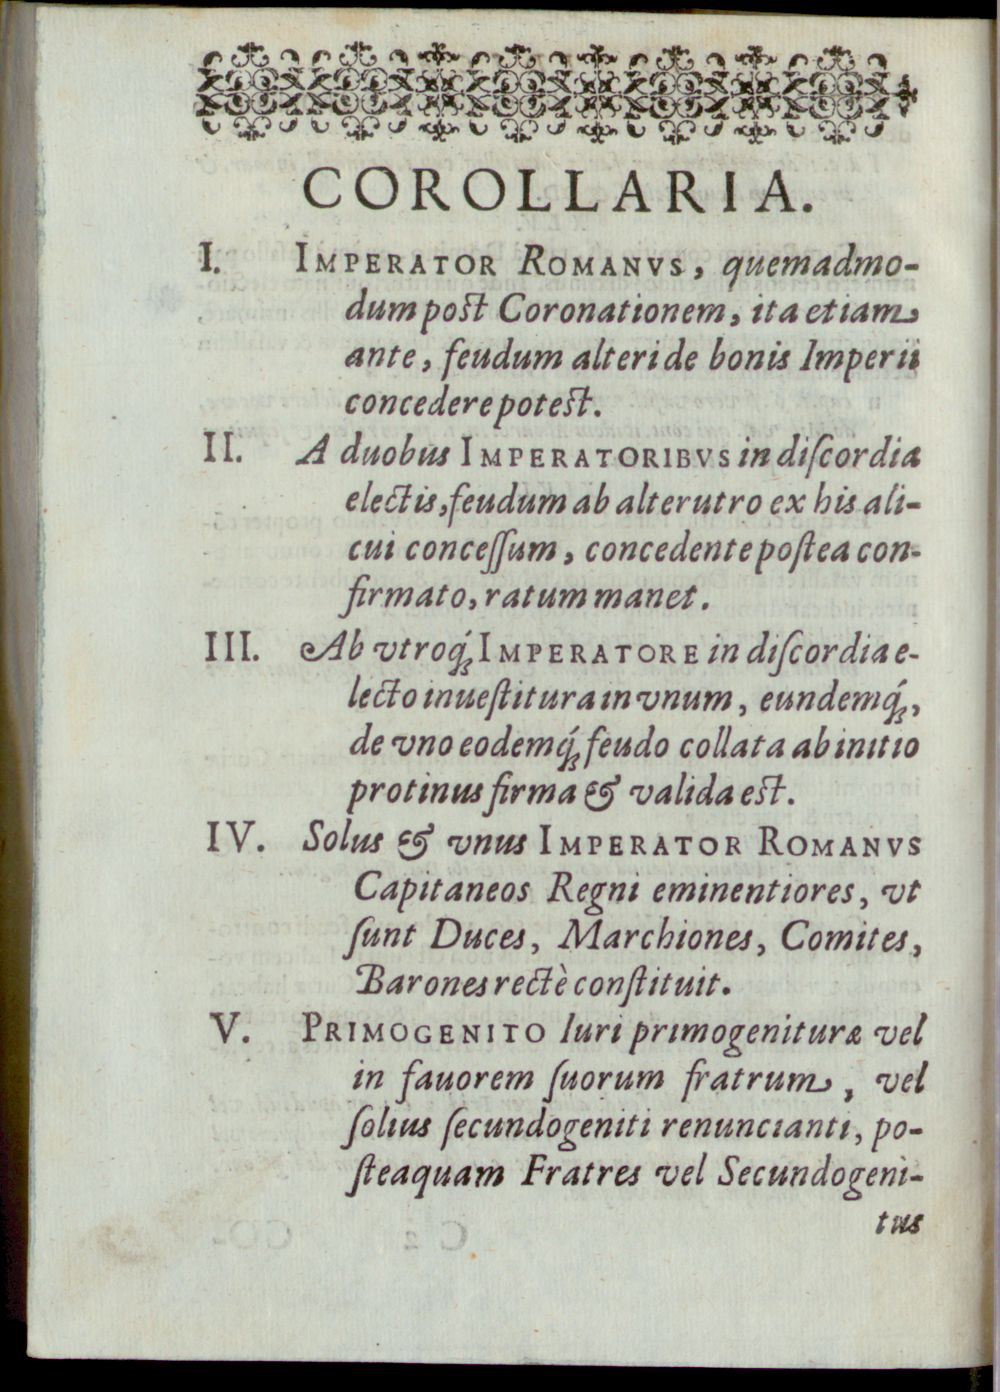 COROLLARIA.
I. IMPERATOR ROMANVS, quemadmo-
dum post Coronationem, ita etiam
ante, feudum alteri de bonis Imperii
concedere potest.
II. A duobus IMPERATORIBVS in diſcordia
electis, feudum ab alterutro ex his ali-
cui conceſſum, concedente poſtea con-
firmato, ratum manet.
III. Ab vtroq́ꝫ IMPERATORE in diſcordia e-
lecto inueſtitura in vnum, eundemq́ꝫ,
de vno eodemq́ꝫ feudo collata ab initio
protinus firma & valida est.
IV. Solus & vnus IMPERATOR ROMANVS
Capitaneos Regni eminentiores, vt
ſunt Duces, Marchiones, Comites,
Barones rectè conſtituit.
V. PRIMOGENITO Iuri primogenituræ vel
in fauorem ſuorum fratrum, vel
ſolius ſecundogeniti renuncianti, po-
ſteaquam Fratres vel Secundogeni-
tus